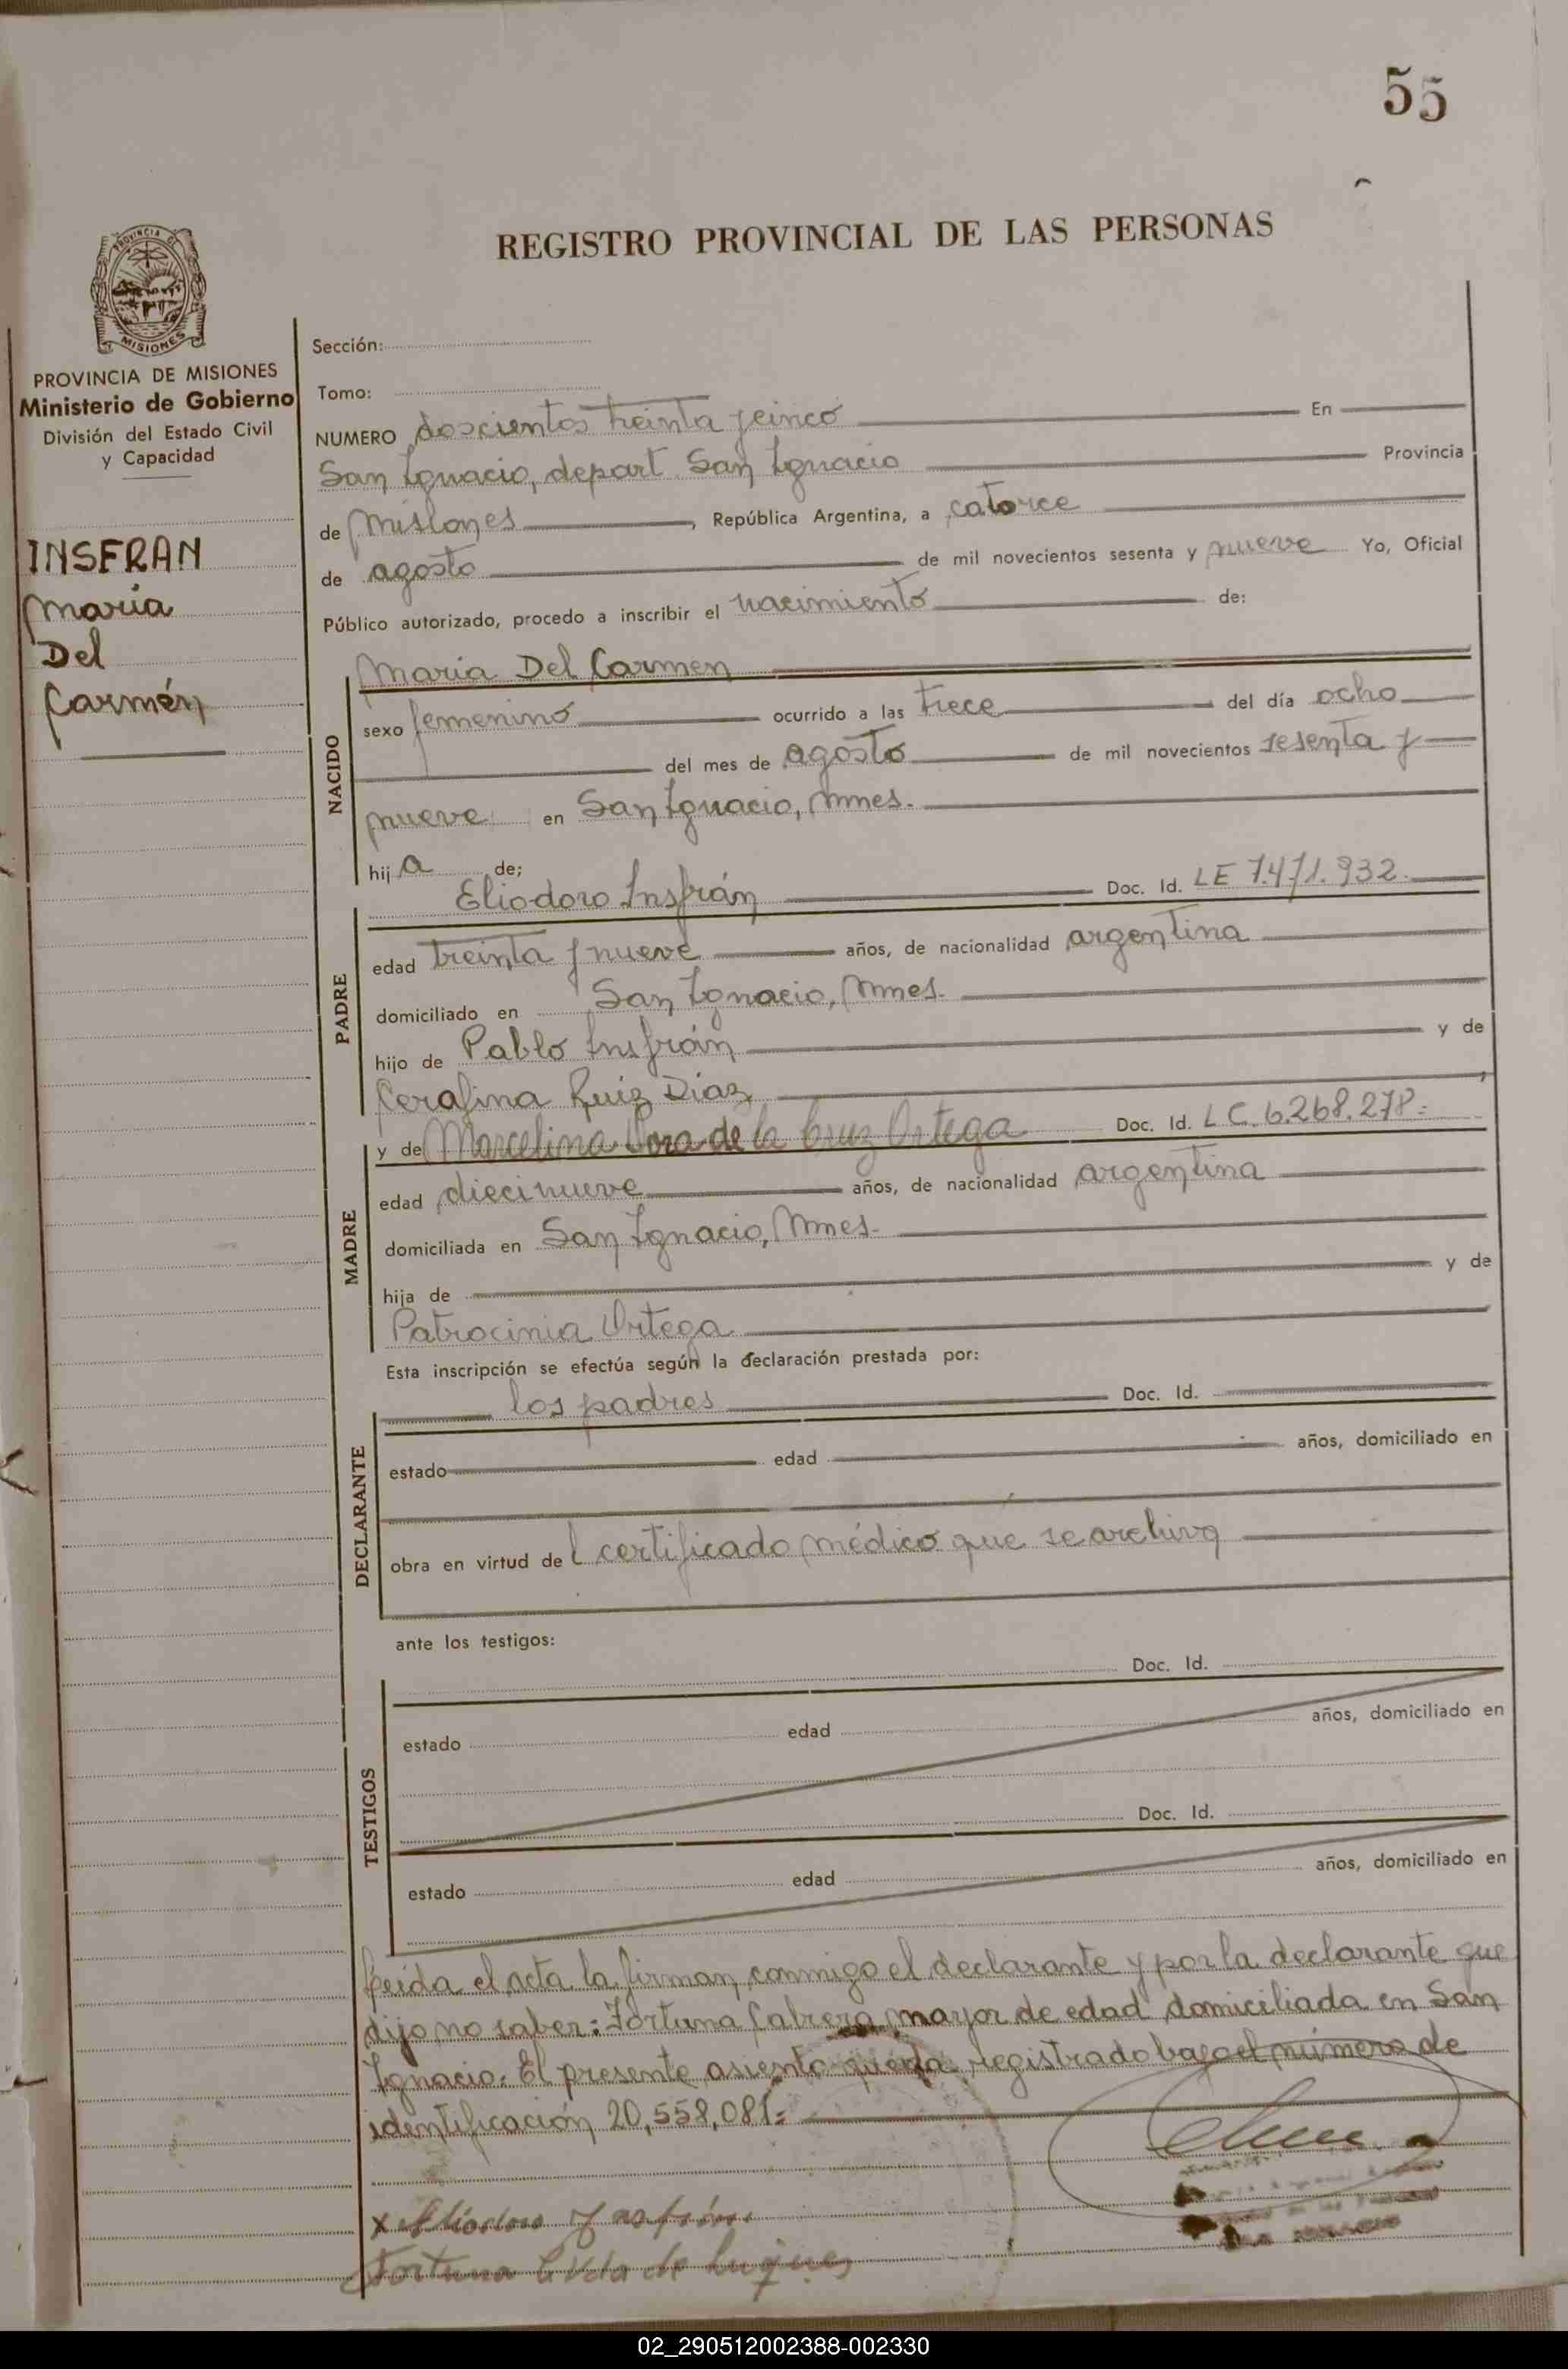 55
REGISTRO PROVINCIAL DE LAS PERSONAS
PROVINCIA DE
MISIONES
PROVINCIA DE MISIONES
Ministerio de Gobierno
División del Estado Civil
y Capacidad
INSFRAN
Maria
Del
Carmén
Sección:
Tomo:
NUMERO doscientos treinta y cinco En
San Ignacio, depart. San Ignacio Provincia
de Misiones, República Argentina, a catorce
de agosto de mil novecientos sesenta y nueve Yo, Oficial
Público autorizado, procedo a inscribir el nacimiento de:
NACIDO
Maria Del Carmen
sexo femenino ocurrido a las trece del día ocho
del mes de agosto de mil novecientos sesenta y
nueve en San Ignacio, Mnes.
hija de;
PADRE
Eliodoro Insfrán Doc. Id. LE 7.471.932.
edad treinta y nueve años, de nacionalidad argentina
domiciliado en San Ignacio, Mnes.
hijo de Pablo Insfrán y de
Cerafina Ruiz Diaz
MADRE
y de Marcelina de la Cruz Ortega Doc. Id. L C. 6.268.278=
edad diecinueve años, de nacionalidad argentina
domiciliada en San Ignacio, Mnes.
hija de y de
Patrocinia Ortega
Esta inscripción se efectúa según la declaración prestada por:
DECLARANTE
los padres Doc. Id.
estado edad años, domiciliado en
obra en virtud del certificado médico que se archiva
ante los testigos:
TESTIGOS
Doc. Id.
estado edad años, domiciliado en
Doc. Id.
estado edad años, domiciliado en
Leida el acta la firman conmigo el declarante y por la declarante que
dijo no saber: Fortuna Cabrera, mayor de edad domiciliada en San
Ignacio. El presente asiento queda registrado bajo el número de
identificación 20,558,081=
x Eliodoro Insfrán
Fortuna C Vda de
02_290512002388-002330